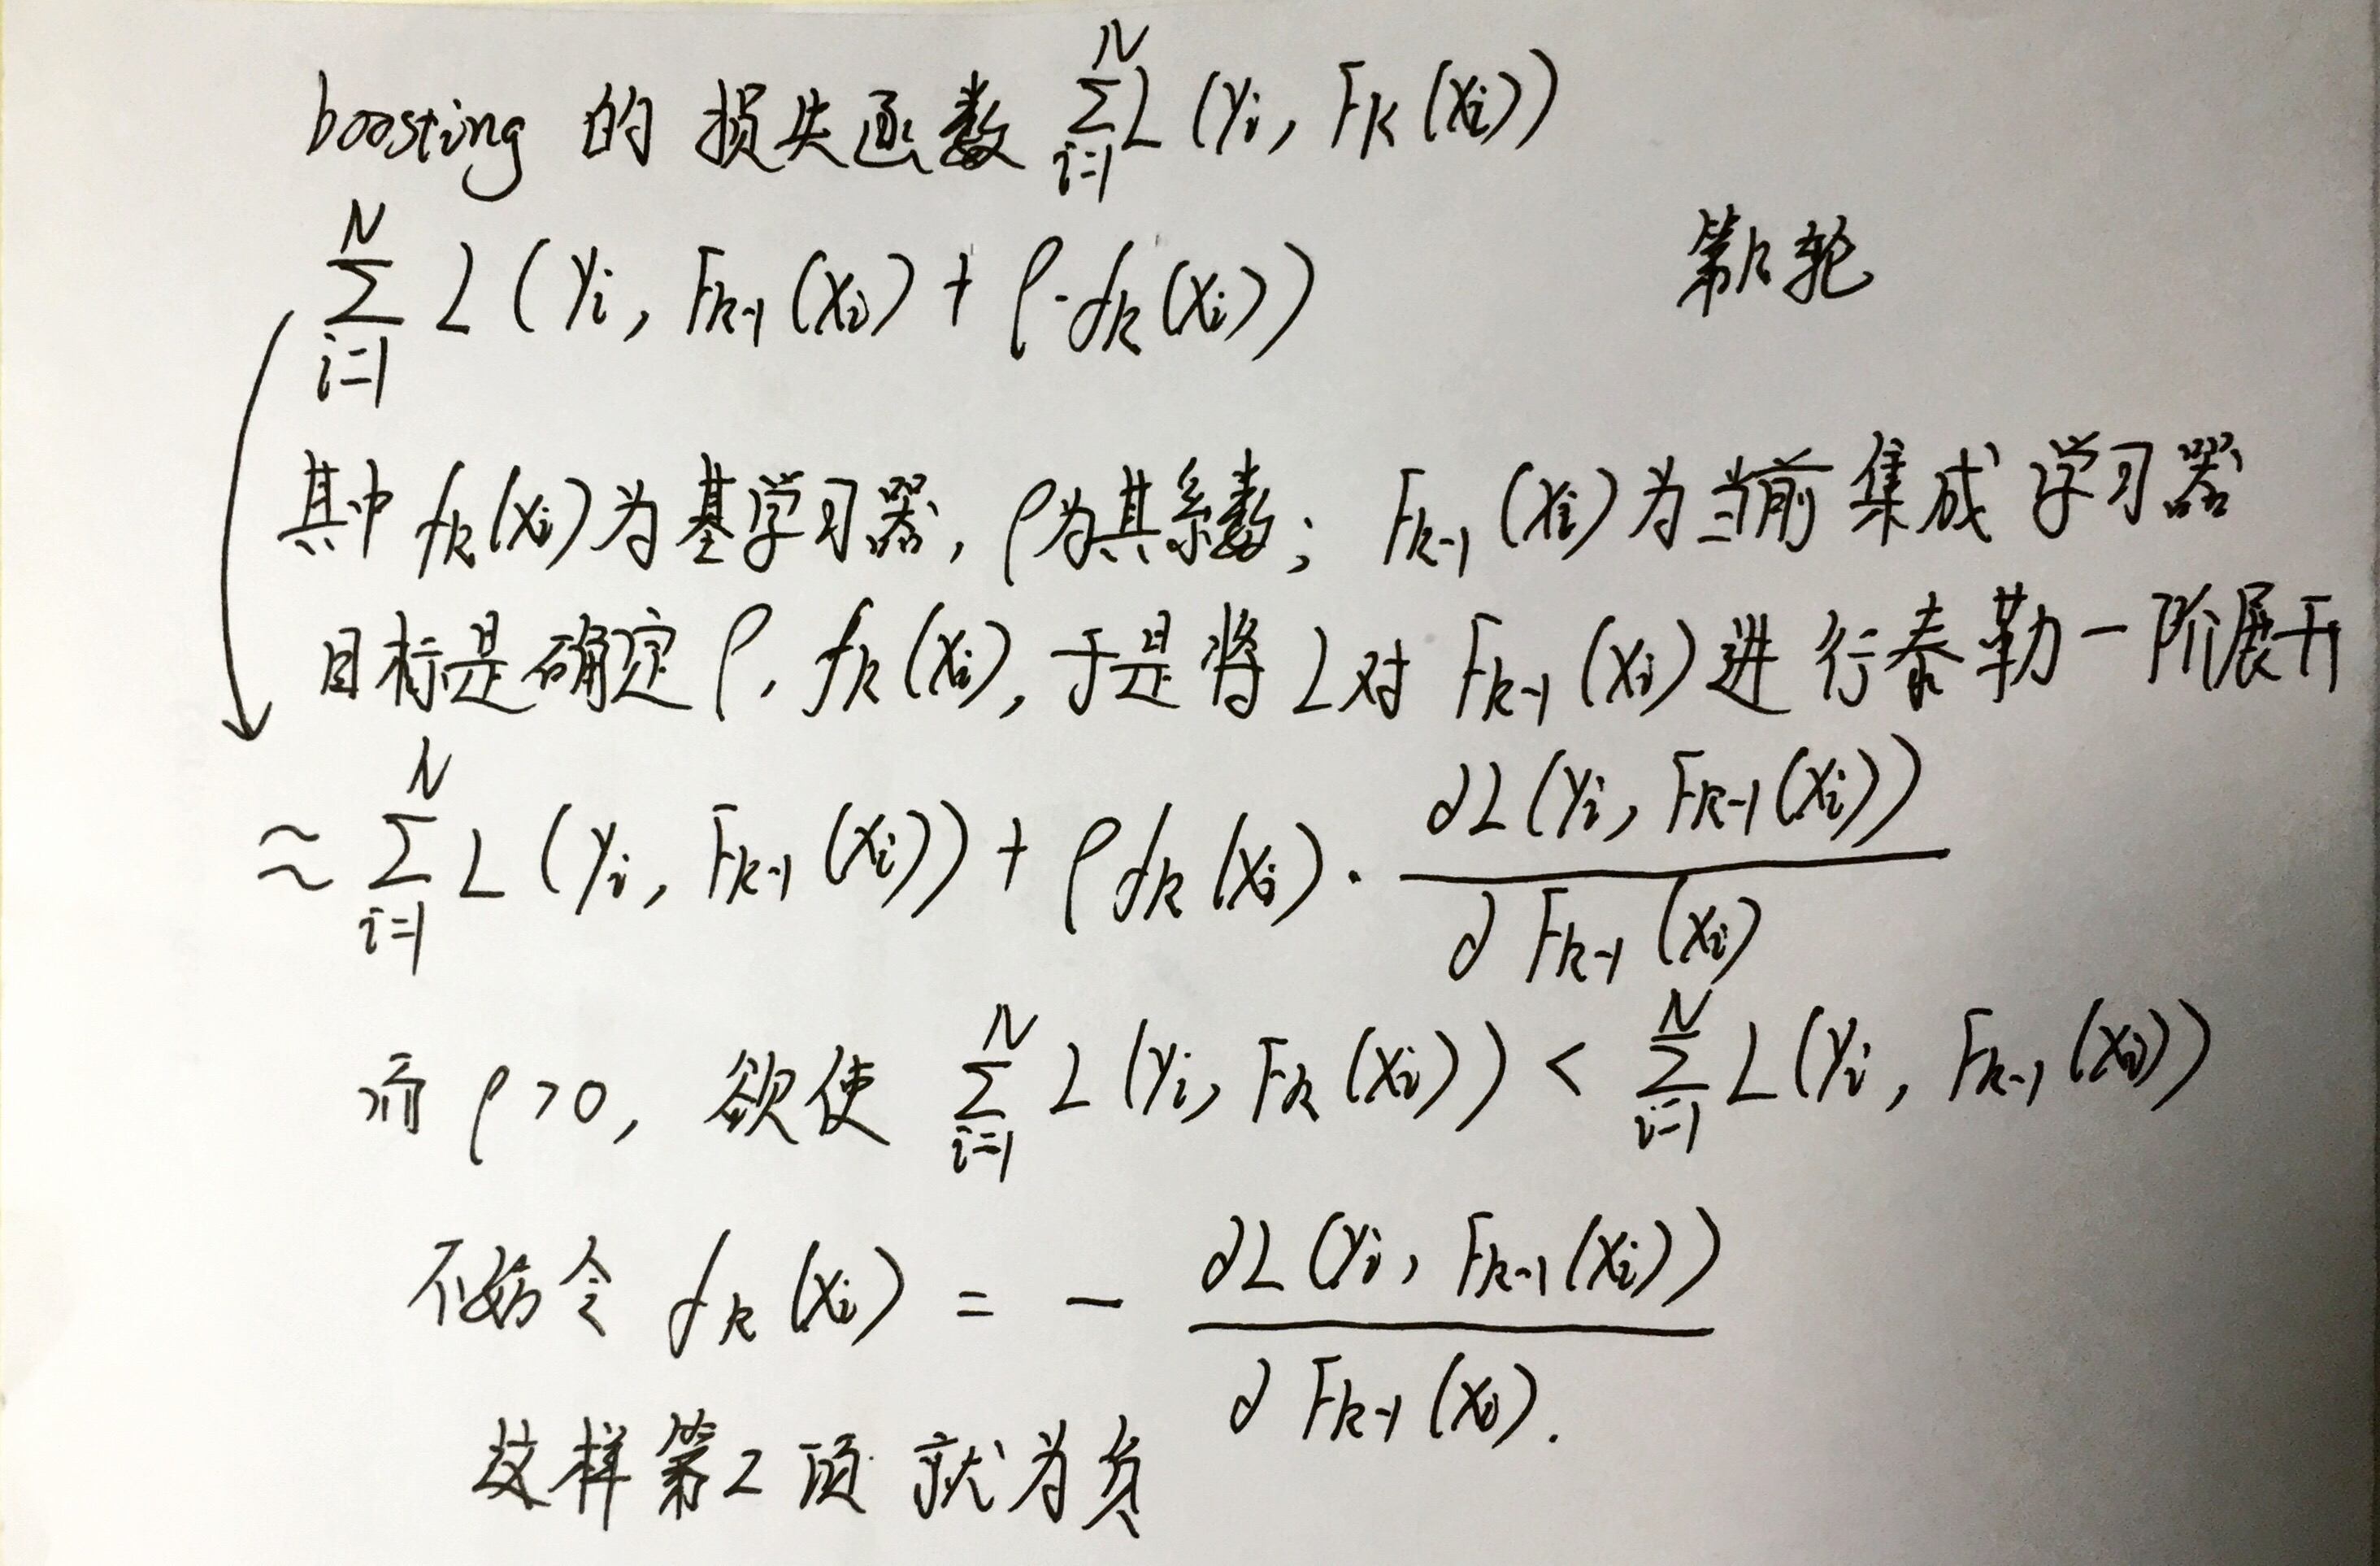 boosting 的损失函数 $\sum_{i=1}^{N} L(y_i, F_k(x_i))$
$\sum_{i=1}^{N} L(y_i, F_{k-1}(x_i) + \rho \cdot f_k(x_i))$ 第k轮
其中 $f_k(x_i)$ 为基学习器, $\rho$ 为其系数; $F_{k-1}(x_i)$ 为当前集成学习器
目标是确定 $\rho, f_k(x_i)$, 于是将 L 对 $F_{k-1}(x_i)$ 进行泰勒一阶展开
$\approx \sum_{i=1}^{N} L(y_i, F_{k-1}(x_i)) + \rho f_k(x_i) \cdot \frac{\partial L(y_i, F_{k-1}(x_i))}{\partial F_{k-1}(x_i)}$
而 $\rho > 0$, 欲使 $\sum_{i=1}^{N} L(y_i, F_k(x_i)) < \sum_{i=1}^{N} L(y_i, F_{k-1}(x_i))$
不妨令 $f_k(x_i) = - \frac{\partial L(y_i, F_{k-1}(x_i))}{\partial F_{k-1}(x_i)}.$
这样第2项就为负